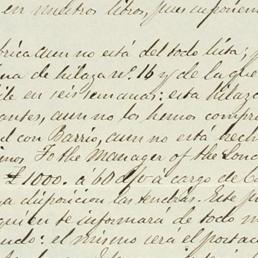 en nuestros libros, pues suponien
brica aun no está del todo lista; y
ina de hilaza nº. 16 y de la que
ile en seis semanas: esta hilaza
antes, aun no los hemos compr
d con Barrio, aun no está hech
imos To the Manager of the Lon
£1000. á 60 d/v á cargo de C
ya disposicion las tendrás. Este
quien te informará de todo m
ndo: el mismo será el portad